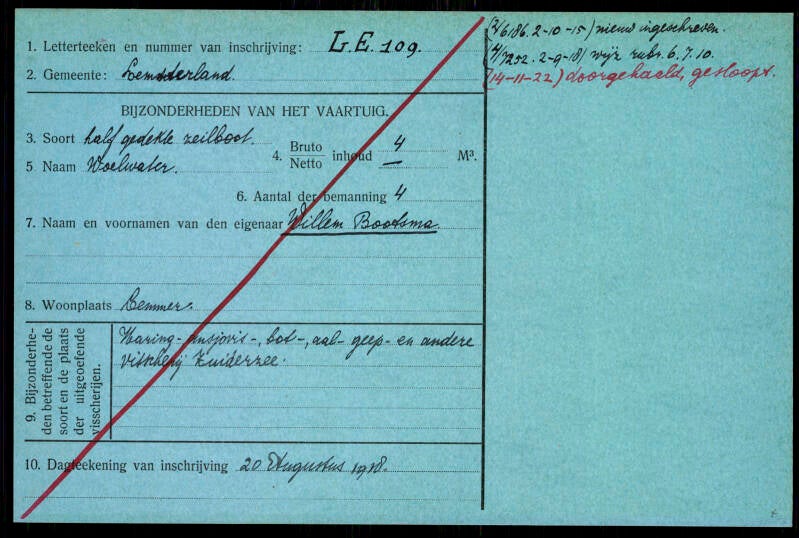 1. Letterteeken en nummer van inschrijving: L.E. 109.
2. Gemeente: Lemsterland.
BIJZONDERHEDEN VAN HET VAARTUIG.
3. Soort half gedekte zeilboot.
4. Bruto Netto inhoud 4 — M³.
5 Naam Woelwater.
6. Aantal der bemanning 4
7. Naam en voornamen van den eigenaar Willem Bootsma.
8. Woonplaats Lemmer.
9. Bijzonderhe-
den betreffende de
soort en de plaats
der uitgeoefende
visscherijen.
Haring- ansjovis-, bot-, aal- geep- en andere
visscherij Zuiderzee.
10. Dagteekening van inschrijving 20 Augustus 1918.
(2/6186. 2-10-15) nieuw ingeschreven.
(4/7252. 2-9-18) wijz rubr. 6. 7. 10.
(14-11-22) doorgehaald, gesloopt.